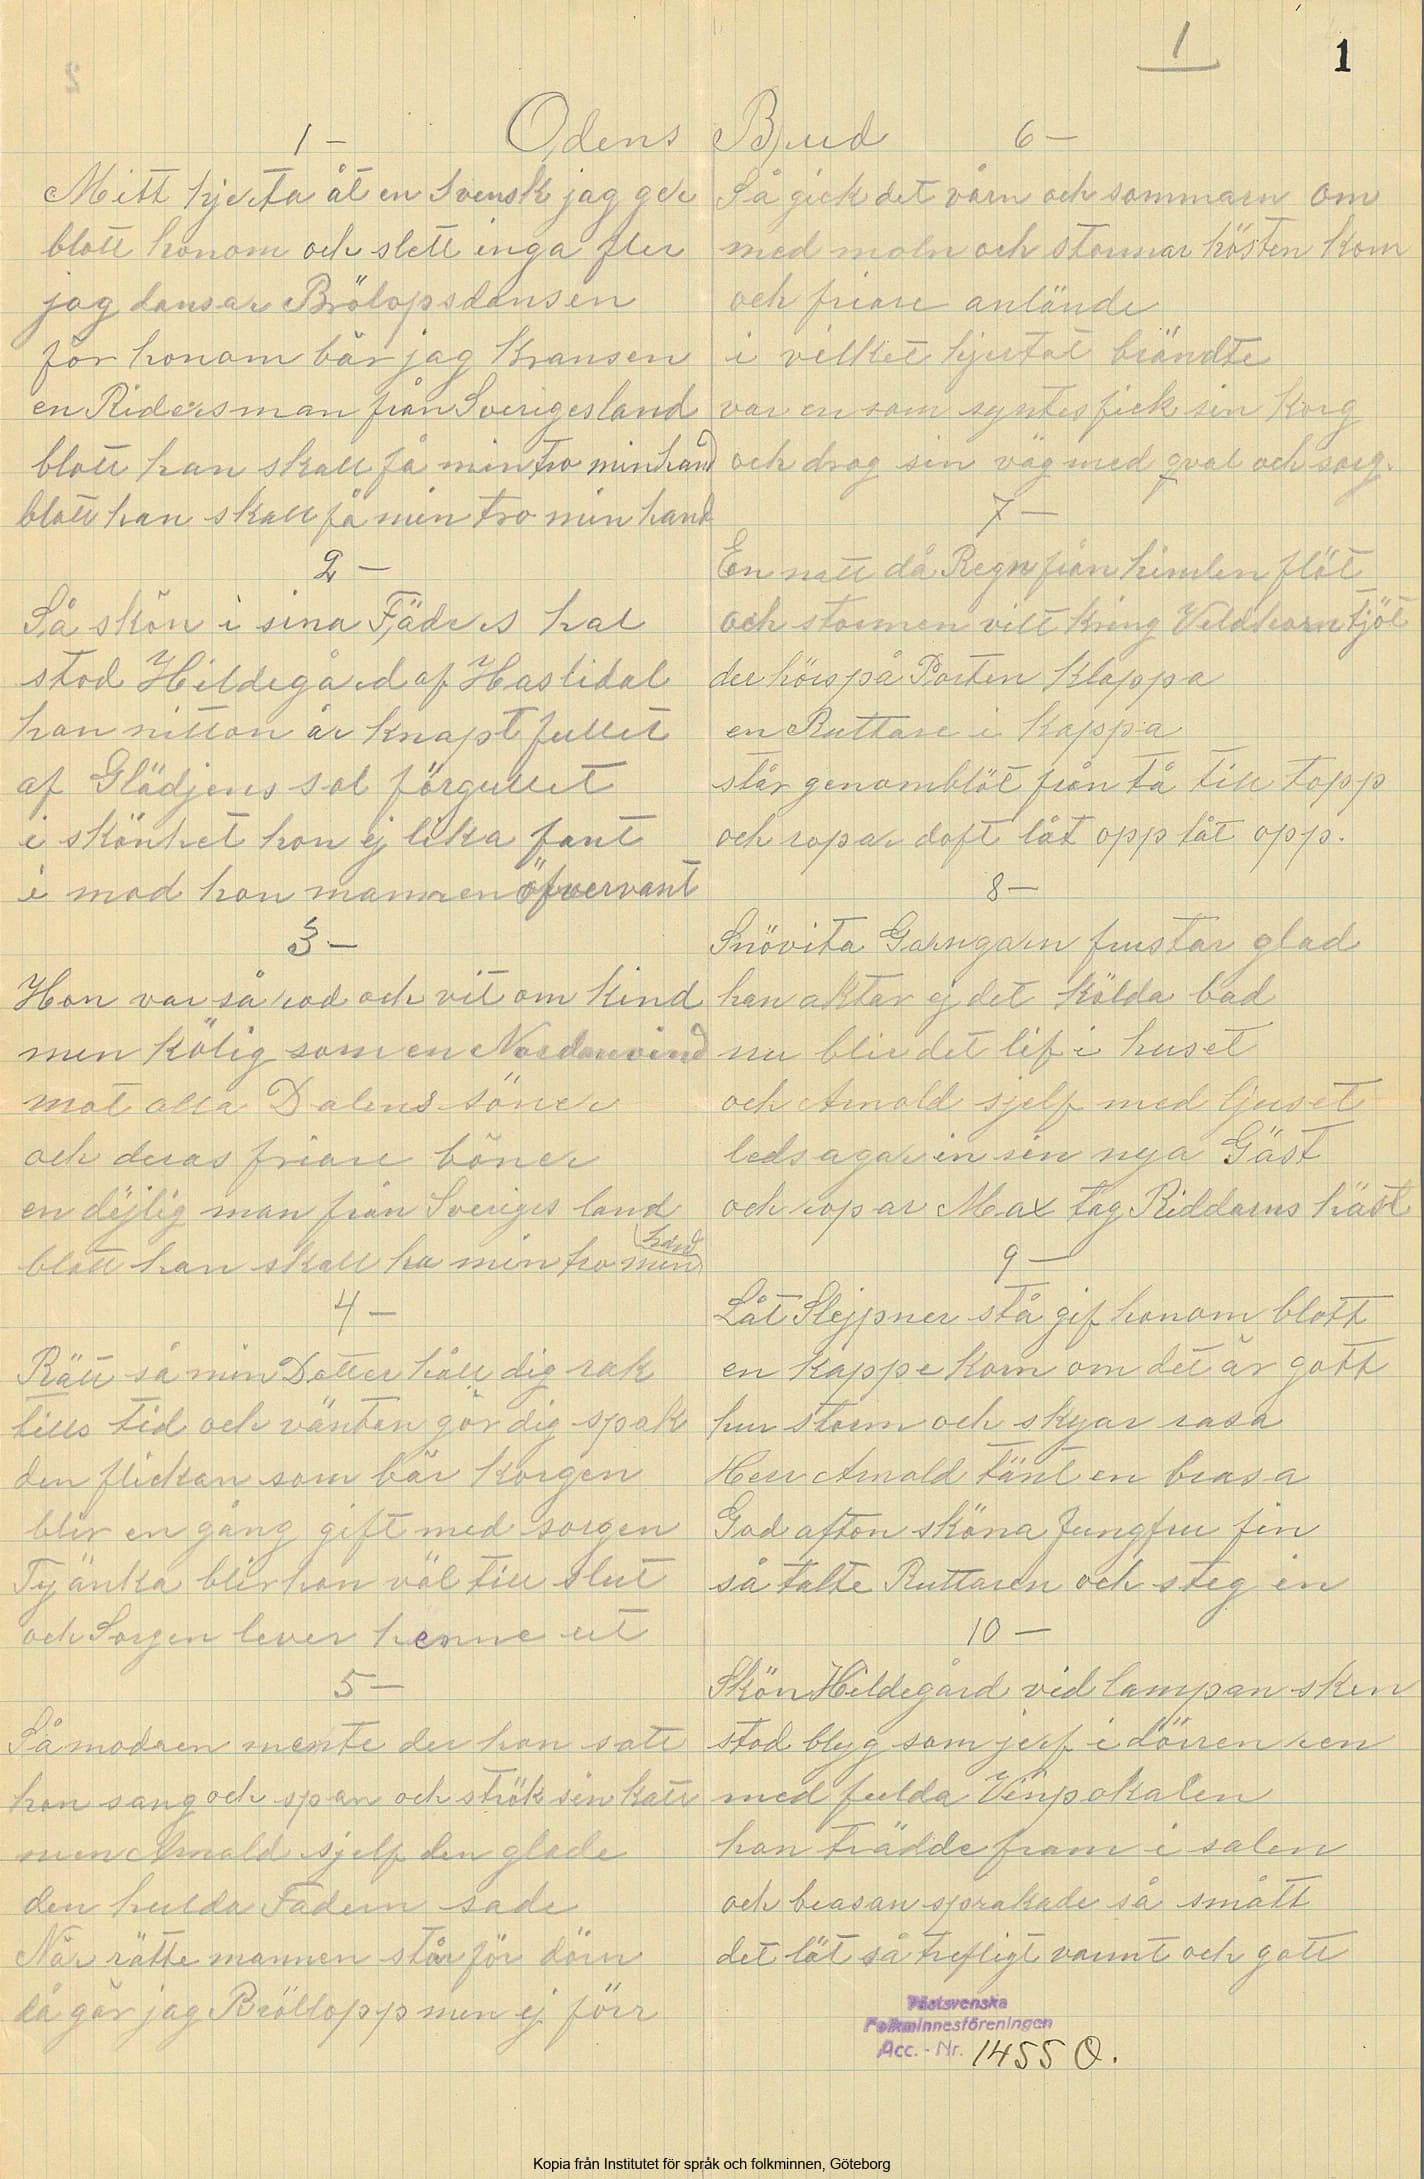 1
1
Odens Brud
1 —
Mitt hjerta åt en Svensk jag ger
blott honom och slett inga fler
jag dansar Brölopsdansen
för honom bär jag Kransen
en Ridersman från Sverigesland
blott han skall få min tro min hand
blott han skall få min tro min hand
2 —
Så skön i sina Fäders hal
stod Hildegård af Haslidal
hon nitton år knapt fullet
af Glädjens sol förgullet
i skönhet hon ej lika fant
i mod hon mannen öfvervant
3 —
Hon var så rod och vit om Kind
men kölig som en Nordanvind
mot alla Dalens söner
och deras friare böner
en dejlig man från Sveriges land
blott han skall ha min tro min hand
4 —
Rätt så min Dotter håll dig rak
tills tid och väntan gör dig spak
den flickan som bär Korgen
blir en gång gift med sorgen
Ty änka blir hon väl till slut
och Sorgen lever henne ut
5 —
Så modren mente der hon satt
hon sang och span och strök sin katt
men Arnold sjelf den glade
den hulda Fadern sade
När rätte mannen står för dörn
då gör jag Bröllopp men ej förr
6 —
Så gick det vårn och sommarn om
med moln och stormar hösten kom
och friare anlände
i vilket hjertat brändte
var en som syntes fick sin Korg
och drog sin väg med qval och sorg.
7 —
En natt då Regn från himlen flöt
och stormen vilt kring Veldhorn tjöt
der hörs på Porten Klappa
en Ruttare i Kappa
står genomblöt från tå till topp
och ropar doft låt opp låt opp.
8 —
Snövita Gangarn frustar glad
han aktar ej det kölda bad
nu blir det lif i huset
och Arnold sjelf med ljuset
ledsagar in sin nya Gäst
och ropar Max tag Riddarns häst
9 —
Låt Slejpner stå gif honom blott
en Kappe Korn om det är gott
hur storm och skyar rasa
Herr Arnold tänt en brasa
God afton sköna Jungfru fin
så talte Ruttaren och steg in
10 —
Skön Hildegård vid lampan sken
stod blyg som jerf i dörren ren
med fulda Vinpokalen
hon trädde fram i salen
och brasan sprakade så smått
det lät så trefligt varmt och gott
Västsvenska
Folkminnesföreningen
Acc. - Nr. 1455 O.
Kopia från Institutet för språk och folkminnen, Göteborg